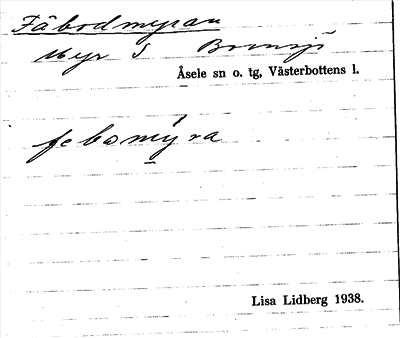 Fäbodmyran
Myr S Bomsjö
Åsele sn o. tg, Västerbottens l.
febomýra
Lisa Lidberg 1938.